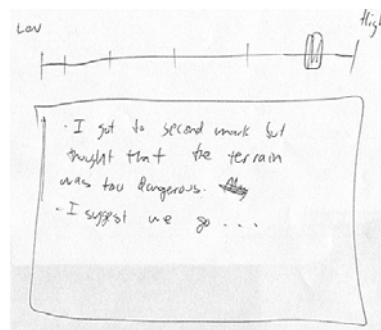 Low
High
- I got to second mark but
thought that the terrain
was too dangerous.
- I suggest we go ...